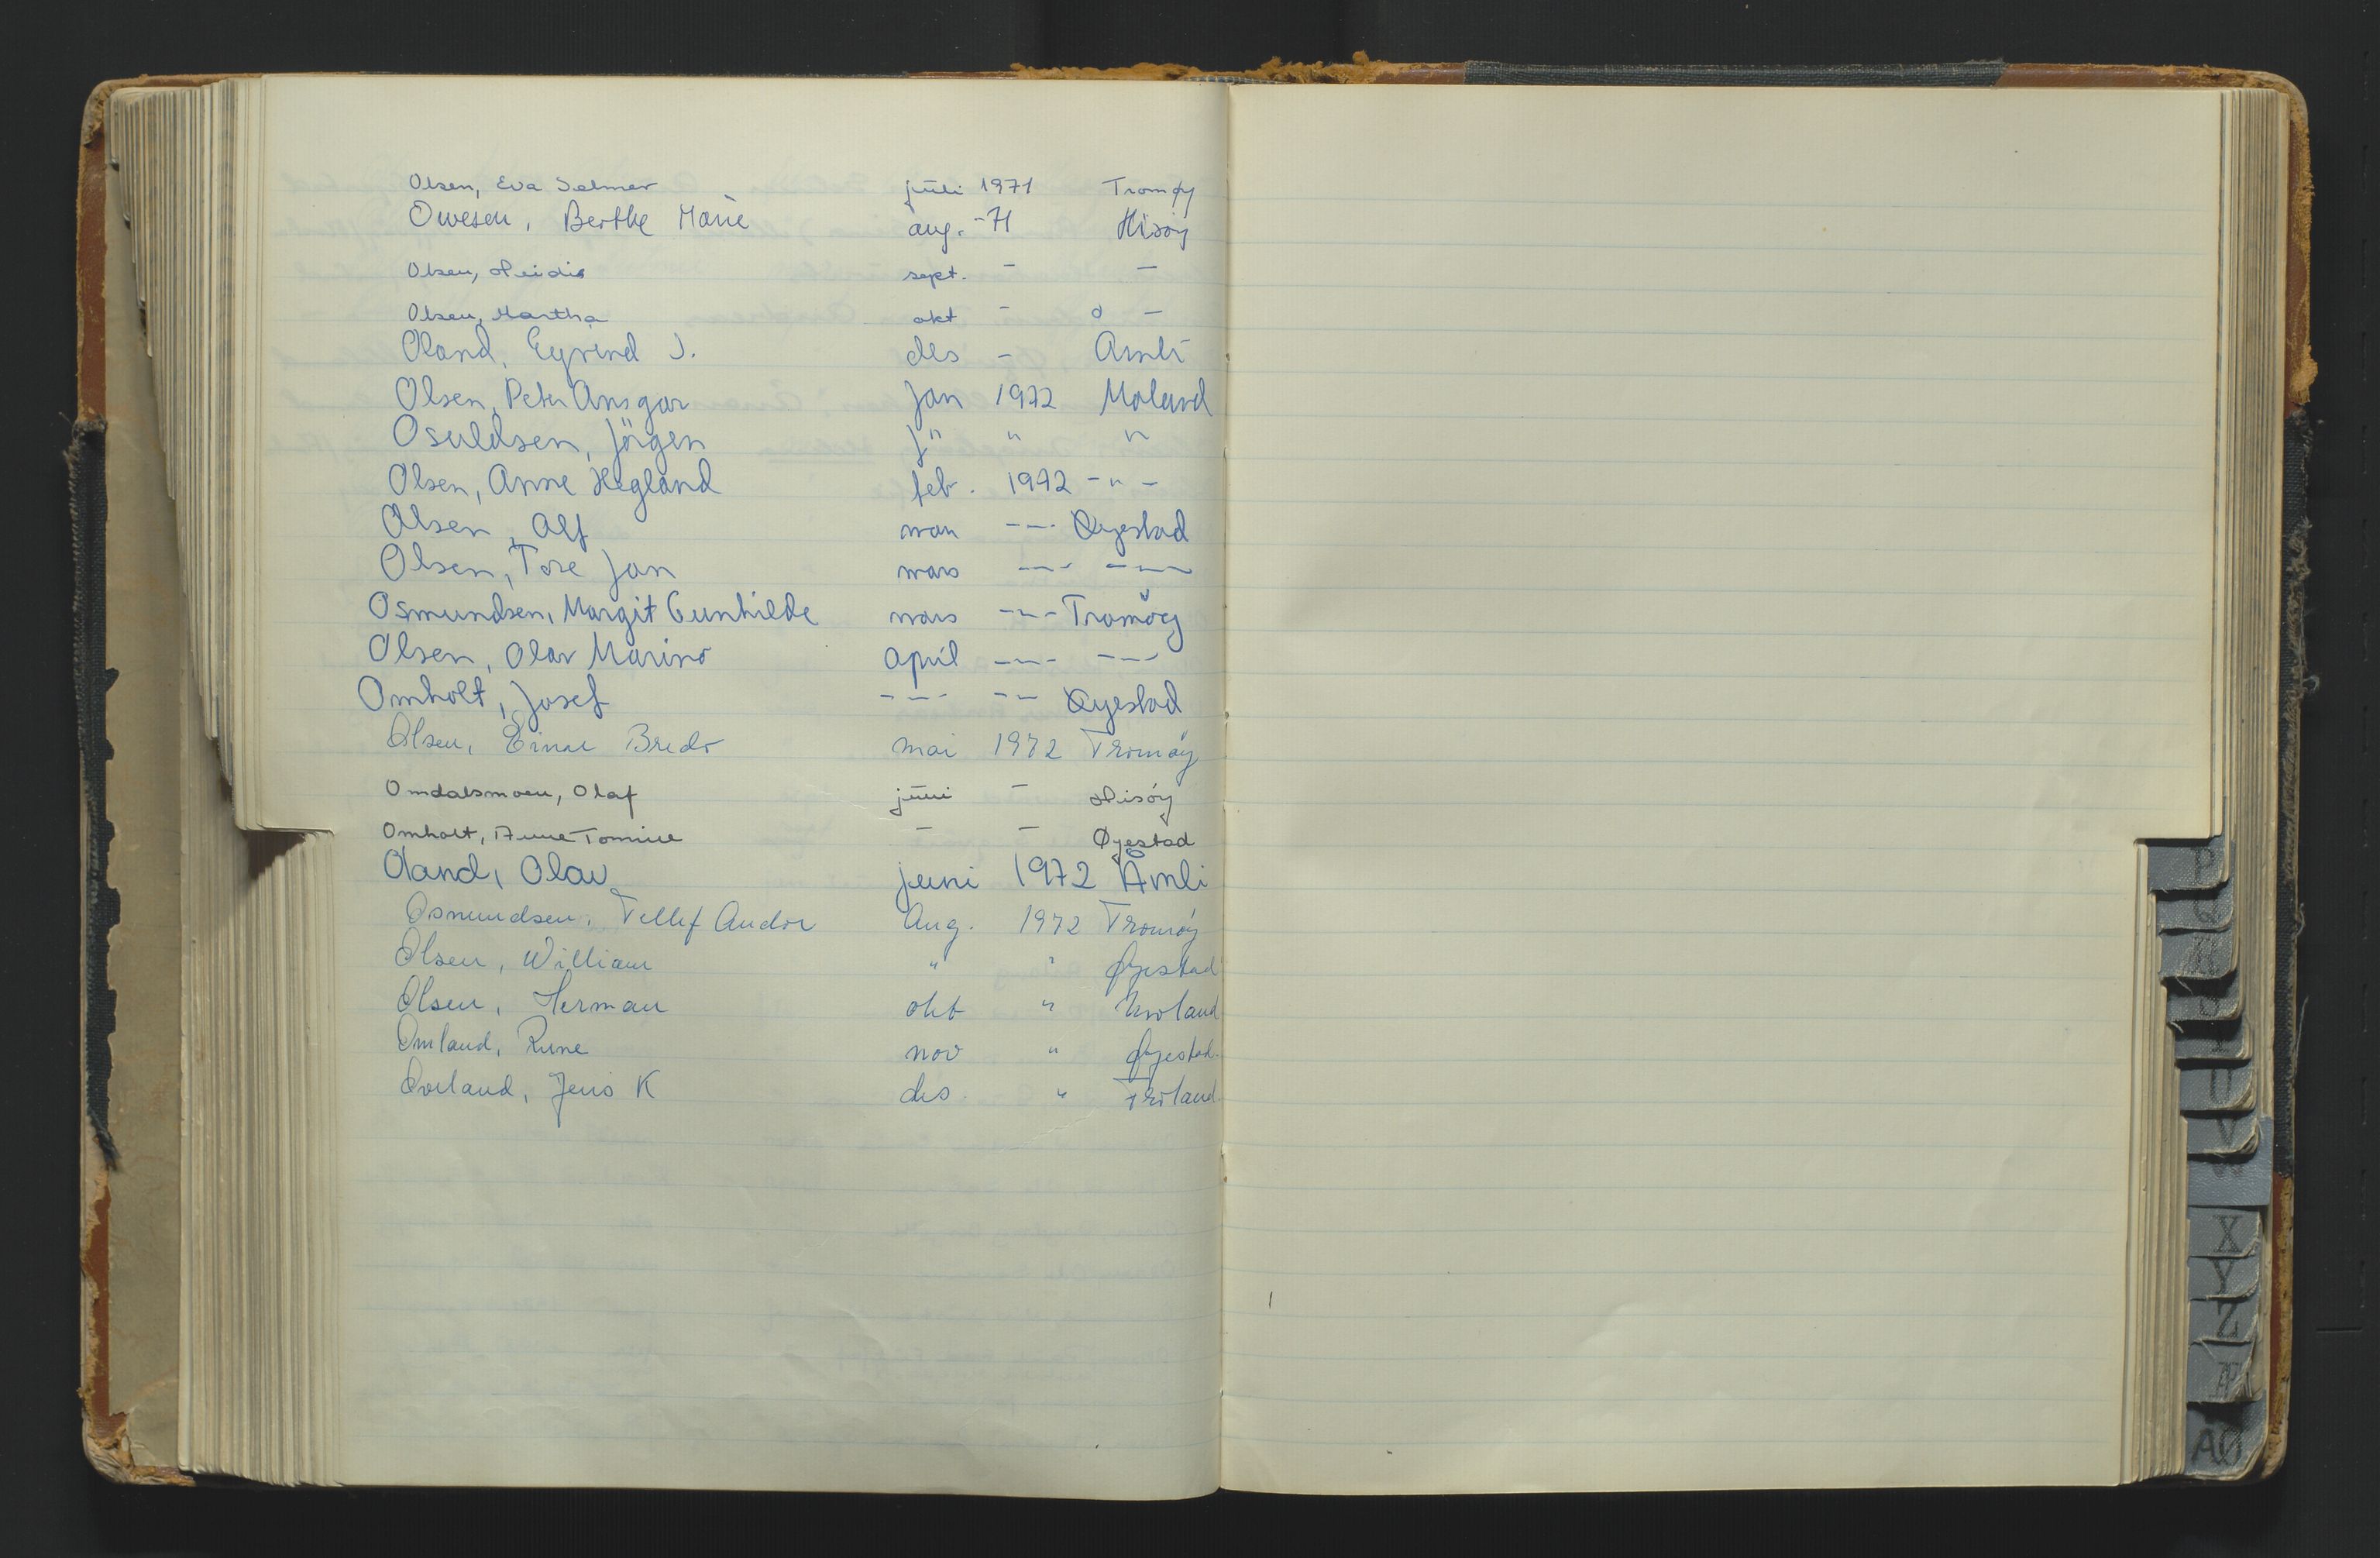 Olsen, Eva Selmer juli 1971 Tromøy
Owesen, Berthe Marie aug. -71 Hisøy
Olsen, Heidis sept. - -
Olsen, Martha okt - -
Oland, Eyvind J. des - Åmli
Olsen, Peter Ansgar jan 1972 Moland
Osuldsen, Jörgen J" " "
Olsen, Anne Hegland feb. 1972 -"-
Olsen, Alf mars --- Øyestad
Olsen, Tore Jan mars --- ---
Osmundsen, Margit Gunhilde mars --- Tromöy
Olsen, Olav Marino April --- ---
Omholt, Josef --- --- Øyestad
Olsen, Einar Bredo mai 1972 Tromøy
Omdalsmoen, Olaf juni - Hisóy
Omholt, Anne Tomine - - Øyestad
Oland, Olav juni 1972 Åmli
Osmundsen, Tellef Andor Aug. 1972 Tromóy
Olsen, William " " Øyestad
Olsen, Herman okt " Moland
Omland, Rune nov " Øyestad.
Overland, Jens K des. " Froland.
P
R
U
V
X
Y
Z
Æ
ÅØ